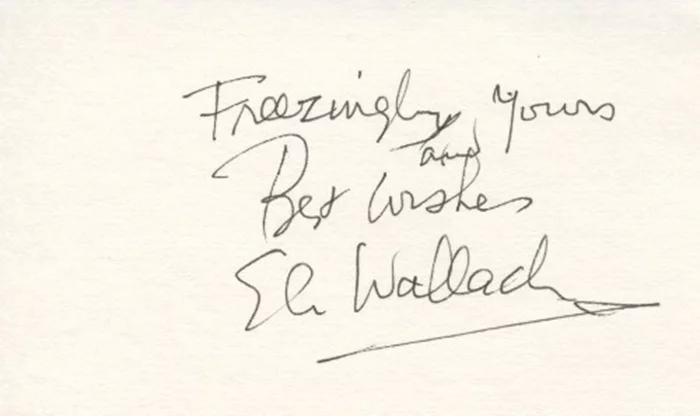 Freezingly Yours
and
Best Wishes
Eli Wallach